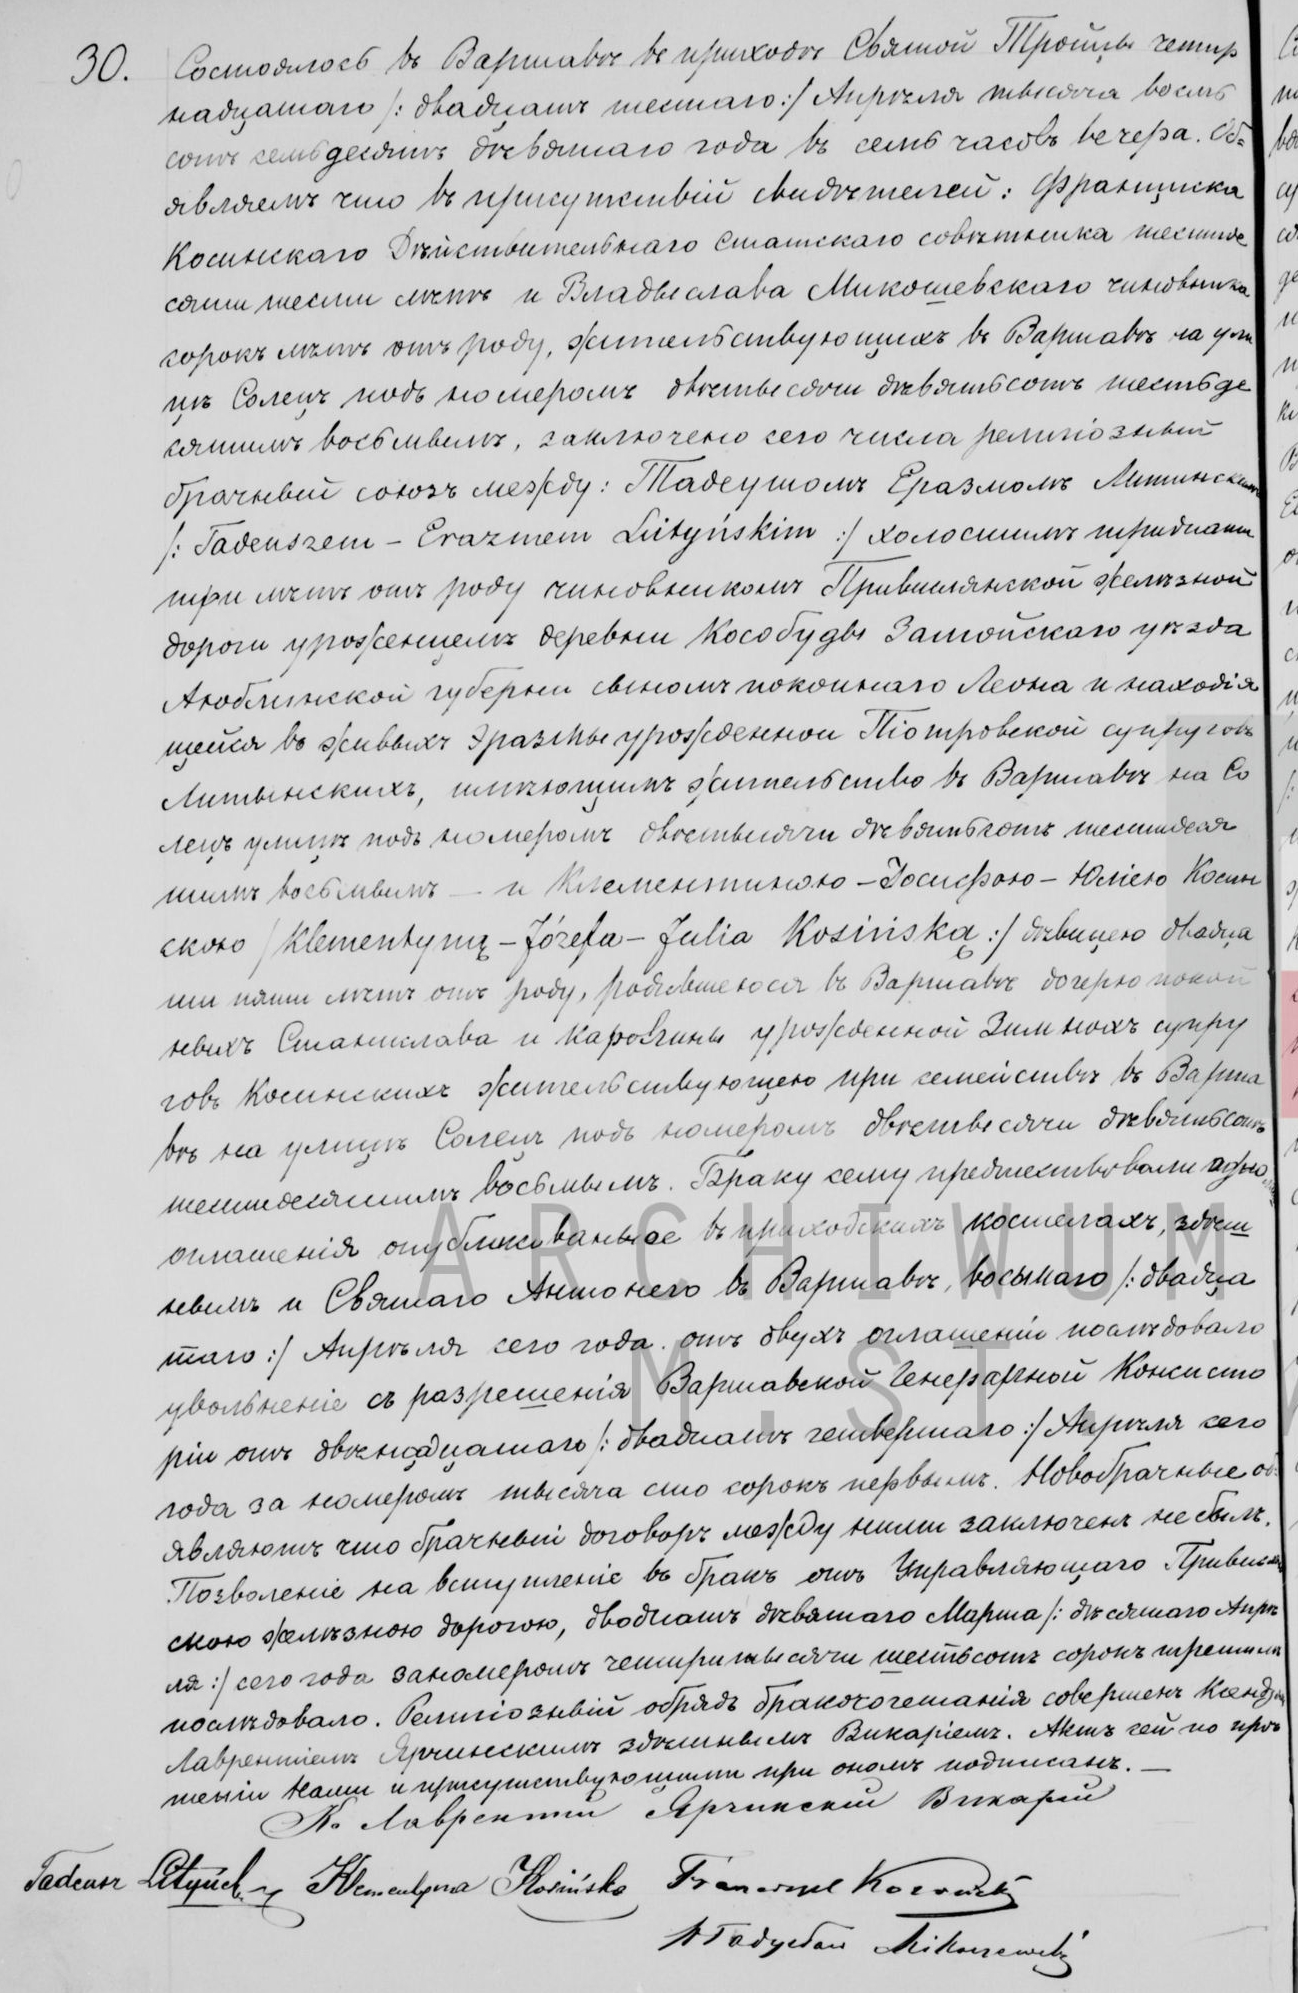 30. Состоялось въ Варшавѣ въ приходѣ Святой Тройцы четыр
надцатаго /: двадцать шестаго :/ Апрѣля тысяча восемь
сотъ семьдесятъ девятаго года въ семь часовъ вечера. Объ=
являемъ что въ присутствіи свидѣтелей: Францишка
Косинскаго Дѣйствительнаго Статскаго совѣтника шестиде
сяти шести лѣтъ и Владыслава Микошевскаго чиновника
сорокъ лѣтъ отъ роду, жительствующихъ въ Варшавѣ на ули
цѣ Солецъ подъ номеромъ двѣтысячи девятьсотъ шестьде
сятымъ восьмымъ, заключено сего числа религіозный
брачный союзъ между: Тадеушомъ Еразмомъ Литинскимъ
/: Tadeuszem – Erazmem Lityńskim :/ холостымъ тридцати
три лѣтъ отъ роду чиновникомъ Привислянской желѣзной
дороги урожденцемъ деревни Кособуды Замойскаго уѣзда
Люблинской губерніи сыномъ покойнаго Леона и находя
щейся въ живыхъ Эразмы урожденной Піотровской супруговъ
Литынскихъ, имѣющимъ жительство въ Варшавѣ на Со
лецъ улицѣ подъ номеромъ двѣтысячи девятьсотъ шестидеся
тымъ восьмымъ — и Клементиною – Іосифою – Юліею Косин
скою / Klementyną – Józefa – Julia Kosińską :/ дѣвицею двадца
ти пяти лѣтъ отъ роду, родившеюся въ Варшавѣ дочерью покой
ныхъ Станислава и Каролины урожденной Зимнохъ супру
говъ Косинскихъ жительствующею при семействѣ въ Варша
вѣ на улицѣ Солецъ подъ номеромъ двѣтысячи девятьсотъ
шестидесятымъ восьмымъ. Браку сему предшествовали одно
оглашенія опубликованное въ приходскихъ костелахъ, здѣш
немъ и Святаго Антонего въ Варшавѣ, восьмаго /: двадца
таго :/ Апрѣля сего года. отъ двухъ оглашеніи послѣдовало
увольненіе съ разрешенія Варшавской Генеральной Консисто
ріи отъ двѣнадцатаго /: двадцать четвертаго :/ Апрѣля сего
года за номеромъ тысяча сто сорокъ первымъ. Новобрачные объ
являютъ что брачный договоръ между ними заключенъ не былъ.
Позволеніе на вступленіе въ бракъ отъ Управляющаго Привислян
скою желѣзною дорогою, двадцать девятаго Марта /: десятаго Апрѣ
ля :/ сего года заномеромъ четыритысячи шестьсотъ сорокъ третьимъ
послѣдовало. Религіозный обрядъ бракосочетанія совершенъ Ксендзомъ
Лаврентіемъ Ярчинскимъ здѣшнымъ Викаріемъ. Актъ сей по проч
теніи Нами и присутствующими при ономъ подписанъ. —
К. Лаврентій Ярчинскій Викарій
Tadeusz Lityński Klementyna Kosińska Franciszek Kosiński
Władysław Mikoszewski
ARCHIWUM
M. ST.